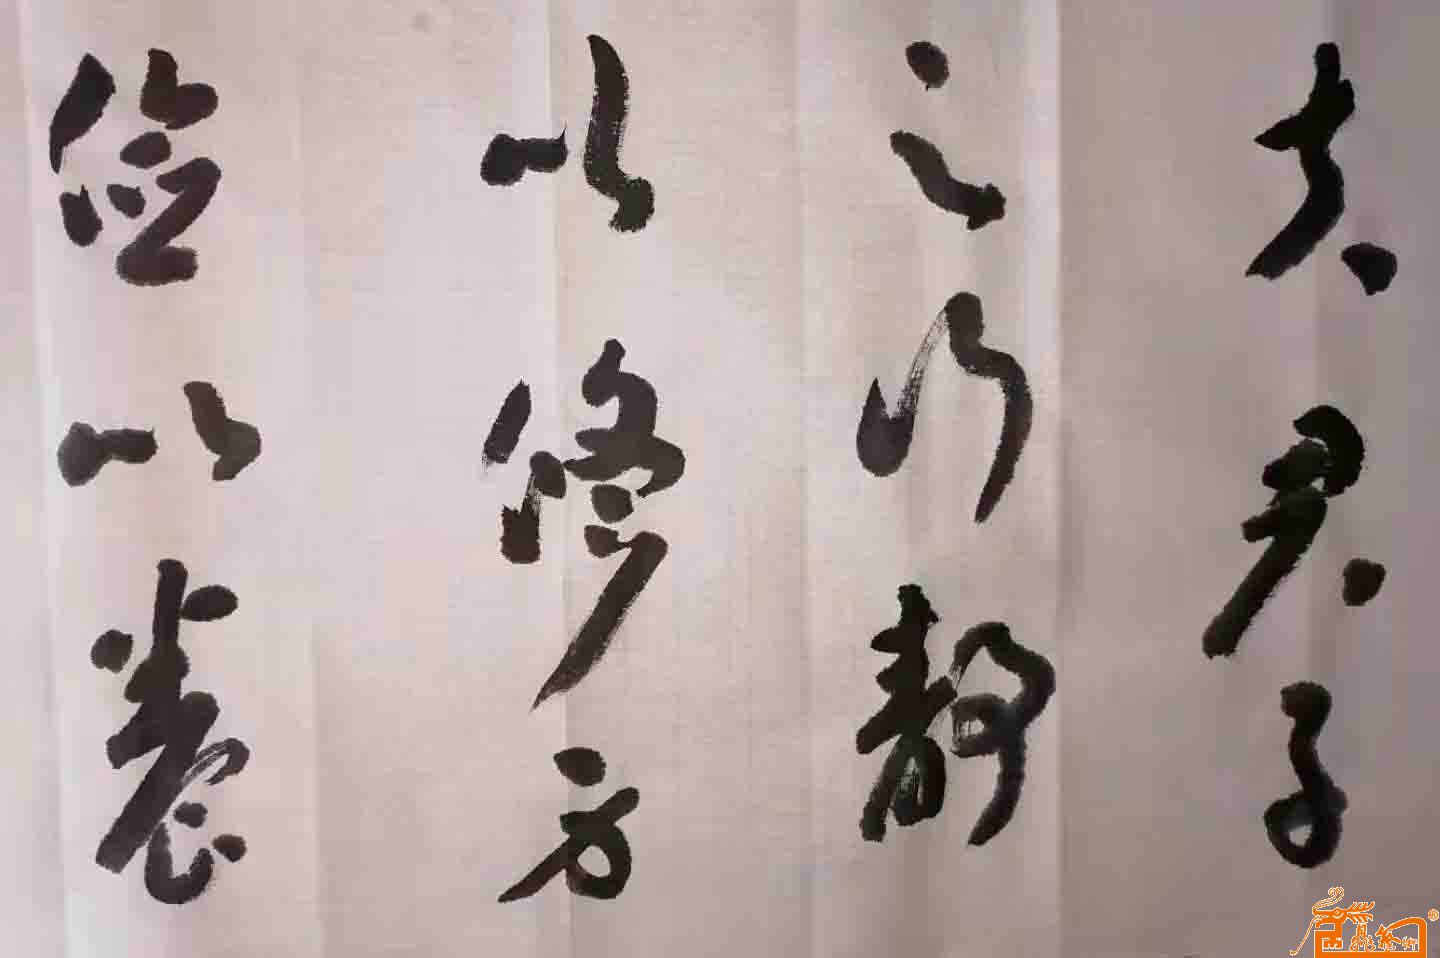 夫君子
之行静
以修身
俭以養